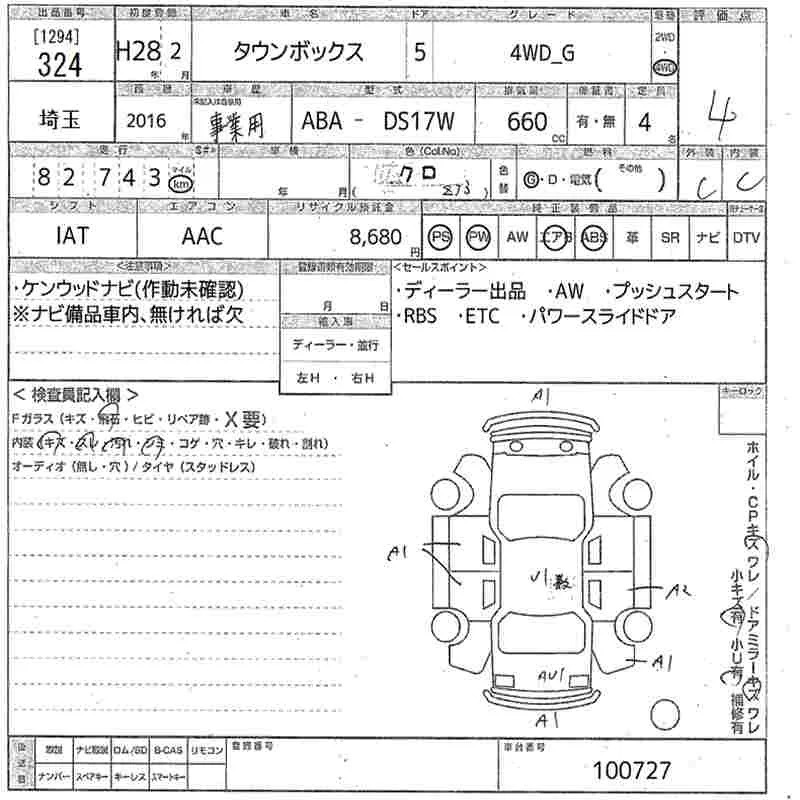 出品番号 初度登録 車名 ドア グレード 駆動 評価点
[1294]
324
H28 2
年 月
タウンボックス
5
4WD_G
2WD
・
4WD
4
車歴 型式 排気量 保証書 定員
埼玉
2016 年
事業用
ABA - DS17W
660 CC
有・無
4 名
走行 車検 色(Col.No) 燃料 外装 内装
82743
マイル
km
年 月
クロ
色替
G・D・電気( その他 )
C C
シフト エアコン リサイクル預託金 純正装備品
IAT AAC 8,680 円
PS PW AW エアB ABS 革 SR ナビ DTV
<注意事項>
・ケンウッドナビ(作動未確認)
※ナビ備品車内、無ければ欠
登録書類有効期限
月 日
輸入車
ディーラー・並行
左H ・ 右H
<セールスポイント>
・ディーラー出品 ・AW ・プッシュスタート
・RBS ・ETC ・パワースライドドア
キーロック
< 検査員記入欄 >
Fガラス (キズ・飛石・ヒビ・リペア跡・X要)
内装 (キズ・スレ・汚れ・シミ・コゲ・穴・キレ・破れ・割れ)
オーディオ (無し・穴) / タイヤ (スタッドレス)
A1
A1
U1数
A2
AU1
A1
A1
ホイル・CPキズ ワレ / ドアミラーキズ ワレ
小キズ有 / 小U有 / 補修有
後送物
取説 ナビ取説 ロム/SD B-CAS リモコン
ナンバー スペアキー キーレス スマートキー
登録番号
車台番号
100727